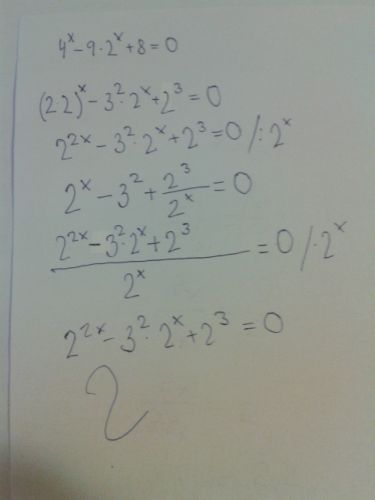 4ˣ-9·2ˣ+8=0
(2·2)ˣ-3²·2ˣ+2³=0
2²ˣ-3²·2ˣ+2³=0/:2ˣ
2ˣ-3²+2³/2ˣ=0
(2²ˣ-3²·2ˣ+2³)/2ˣ=0/·2ˣ
2²ˣ-3²·2ˣ+2³=0